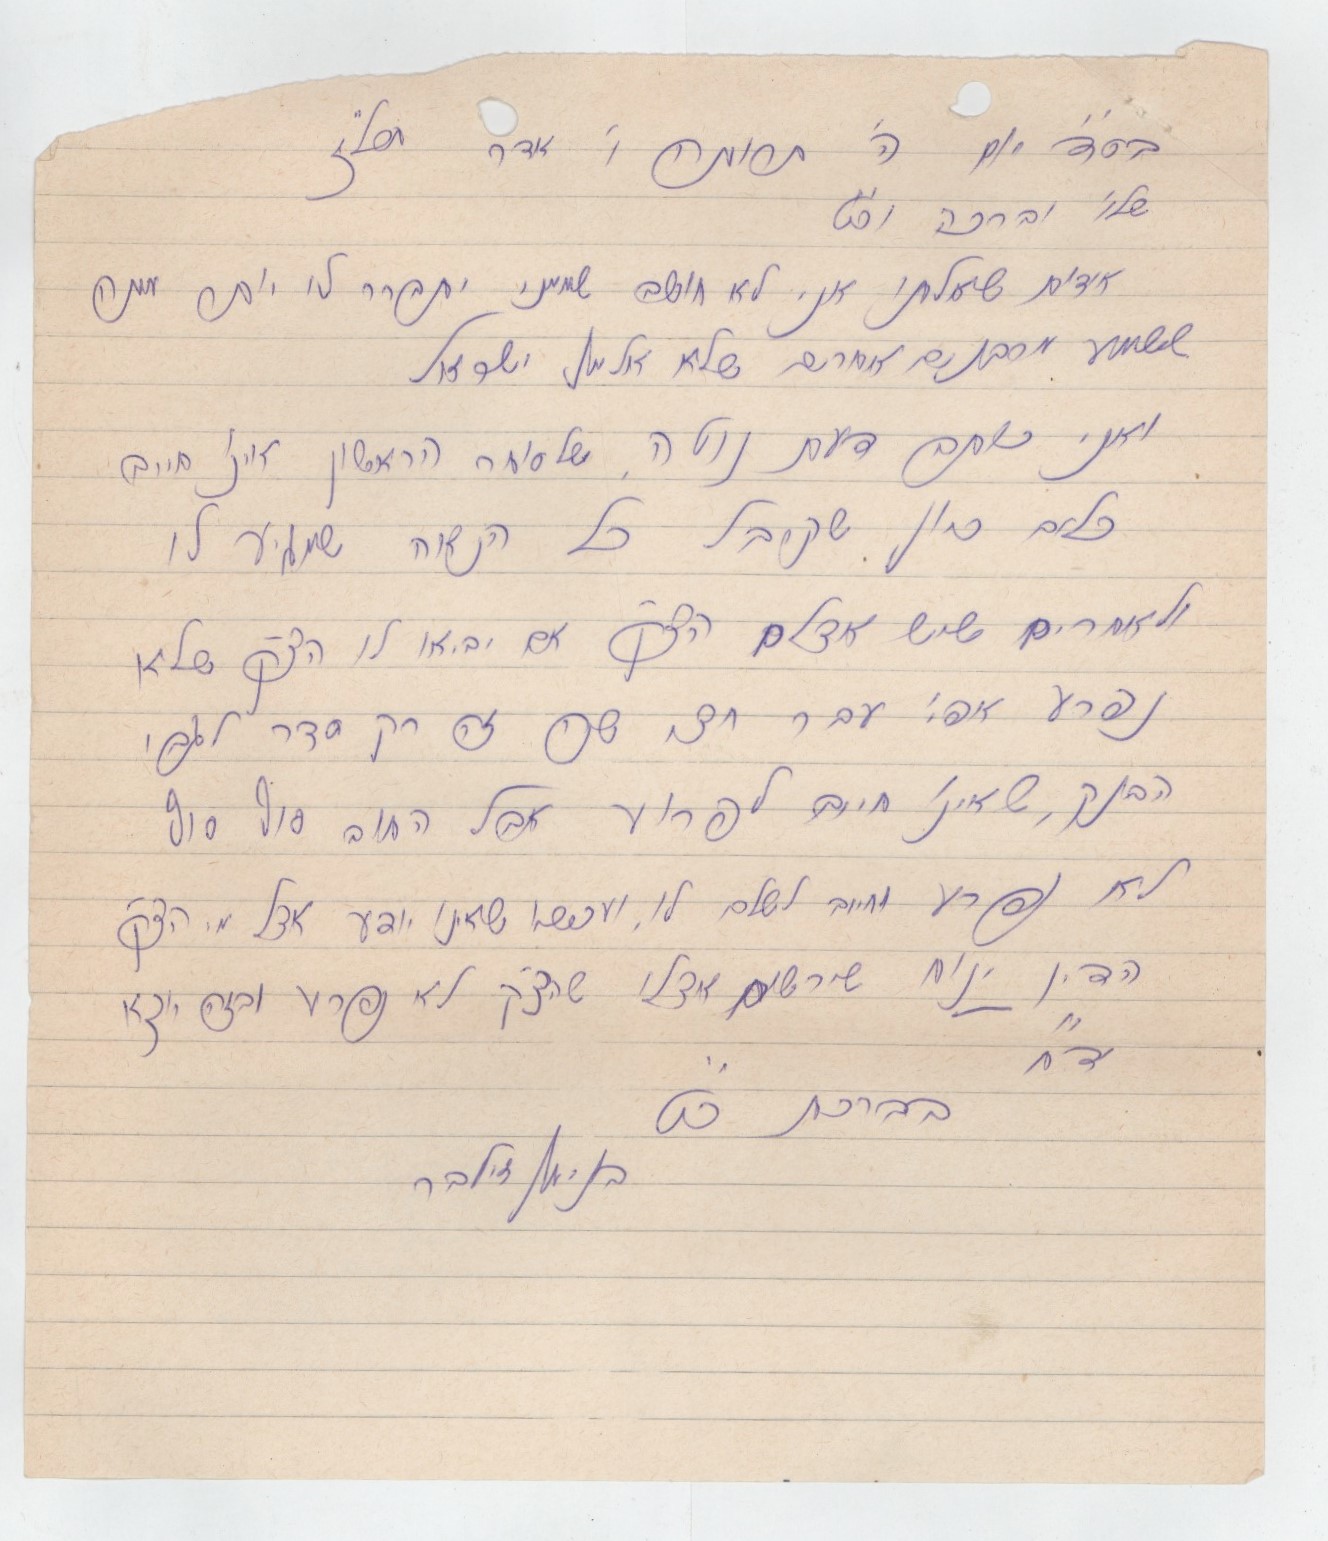 בסי"ד יום ה' תרומה ו' אדר תשל"ז
שלו' וברכה וכ"ט
אודות שאלתו אני לא חושב שממני יתברר לו יותר ממה
ששמע מרבנים אחרים שלא אלמן ישראל
ואני כותב דעת נוטה, שלסוחר הראשון אינו חייב
כלום כיון שקיבל כל הקצוה שמגיע לו
ולאחרים שיש אצלם הצ'ק אם יביאו לו הצ'ק שלא
נפרע אפי' עבר חצי שנה זה רק סדר לגבי
הבנק, שאינו חייב לפרוע אבל החוב סוף סוף
לא נפרע וחייב לשלם לו, ועכשיו שאינו יודע אצל מי הצ'ק
הדין יניח שירשום אצלו שהצ'ק לא נפרע ובזה יוצא
יד"ח
בברכת כ"ט
בנימין זילבר